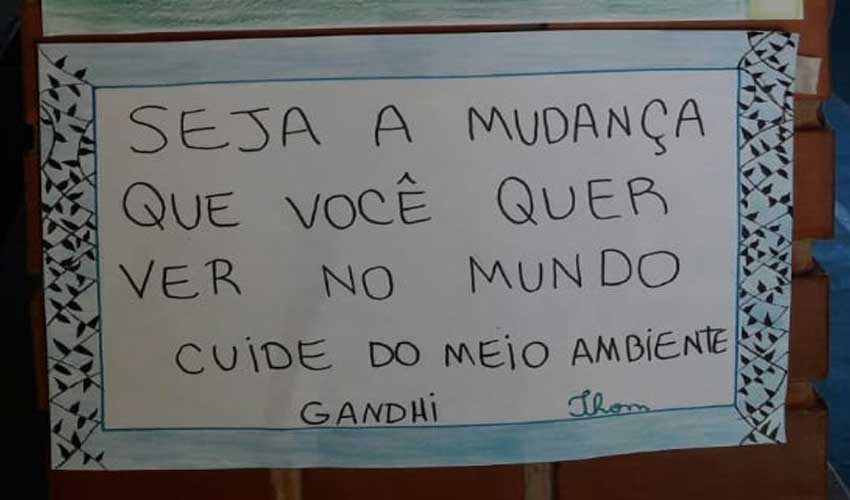 SEJA A MUDANÇA
QUE VOCÊ QUER
VER NO MUNDO
CUIDE DO MEIO AMBIENTE
GANDHI Thom